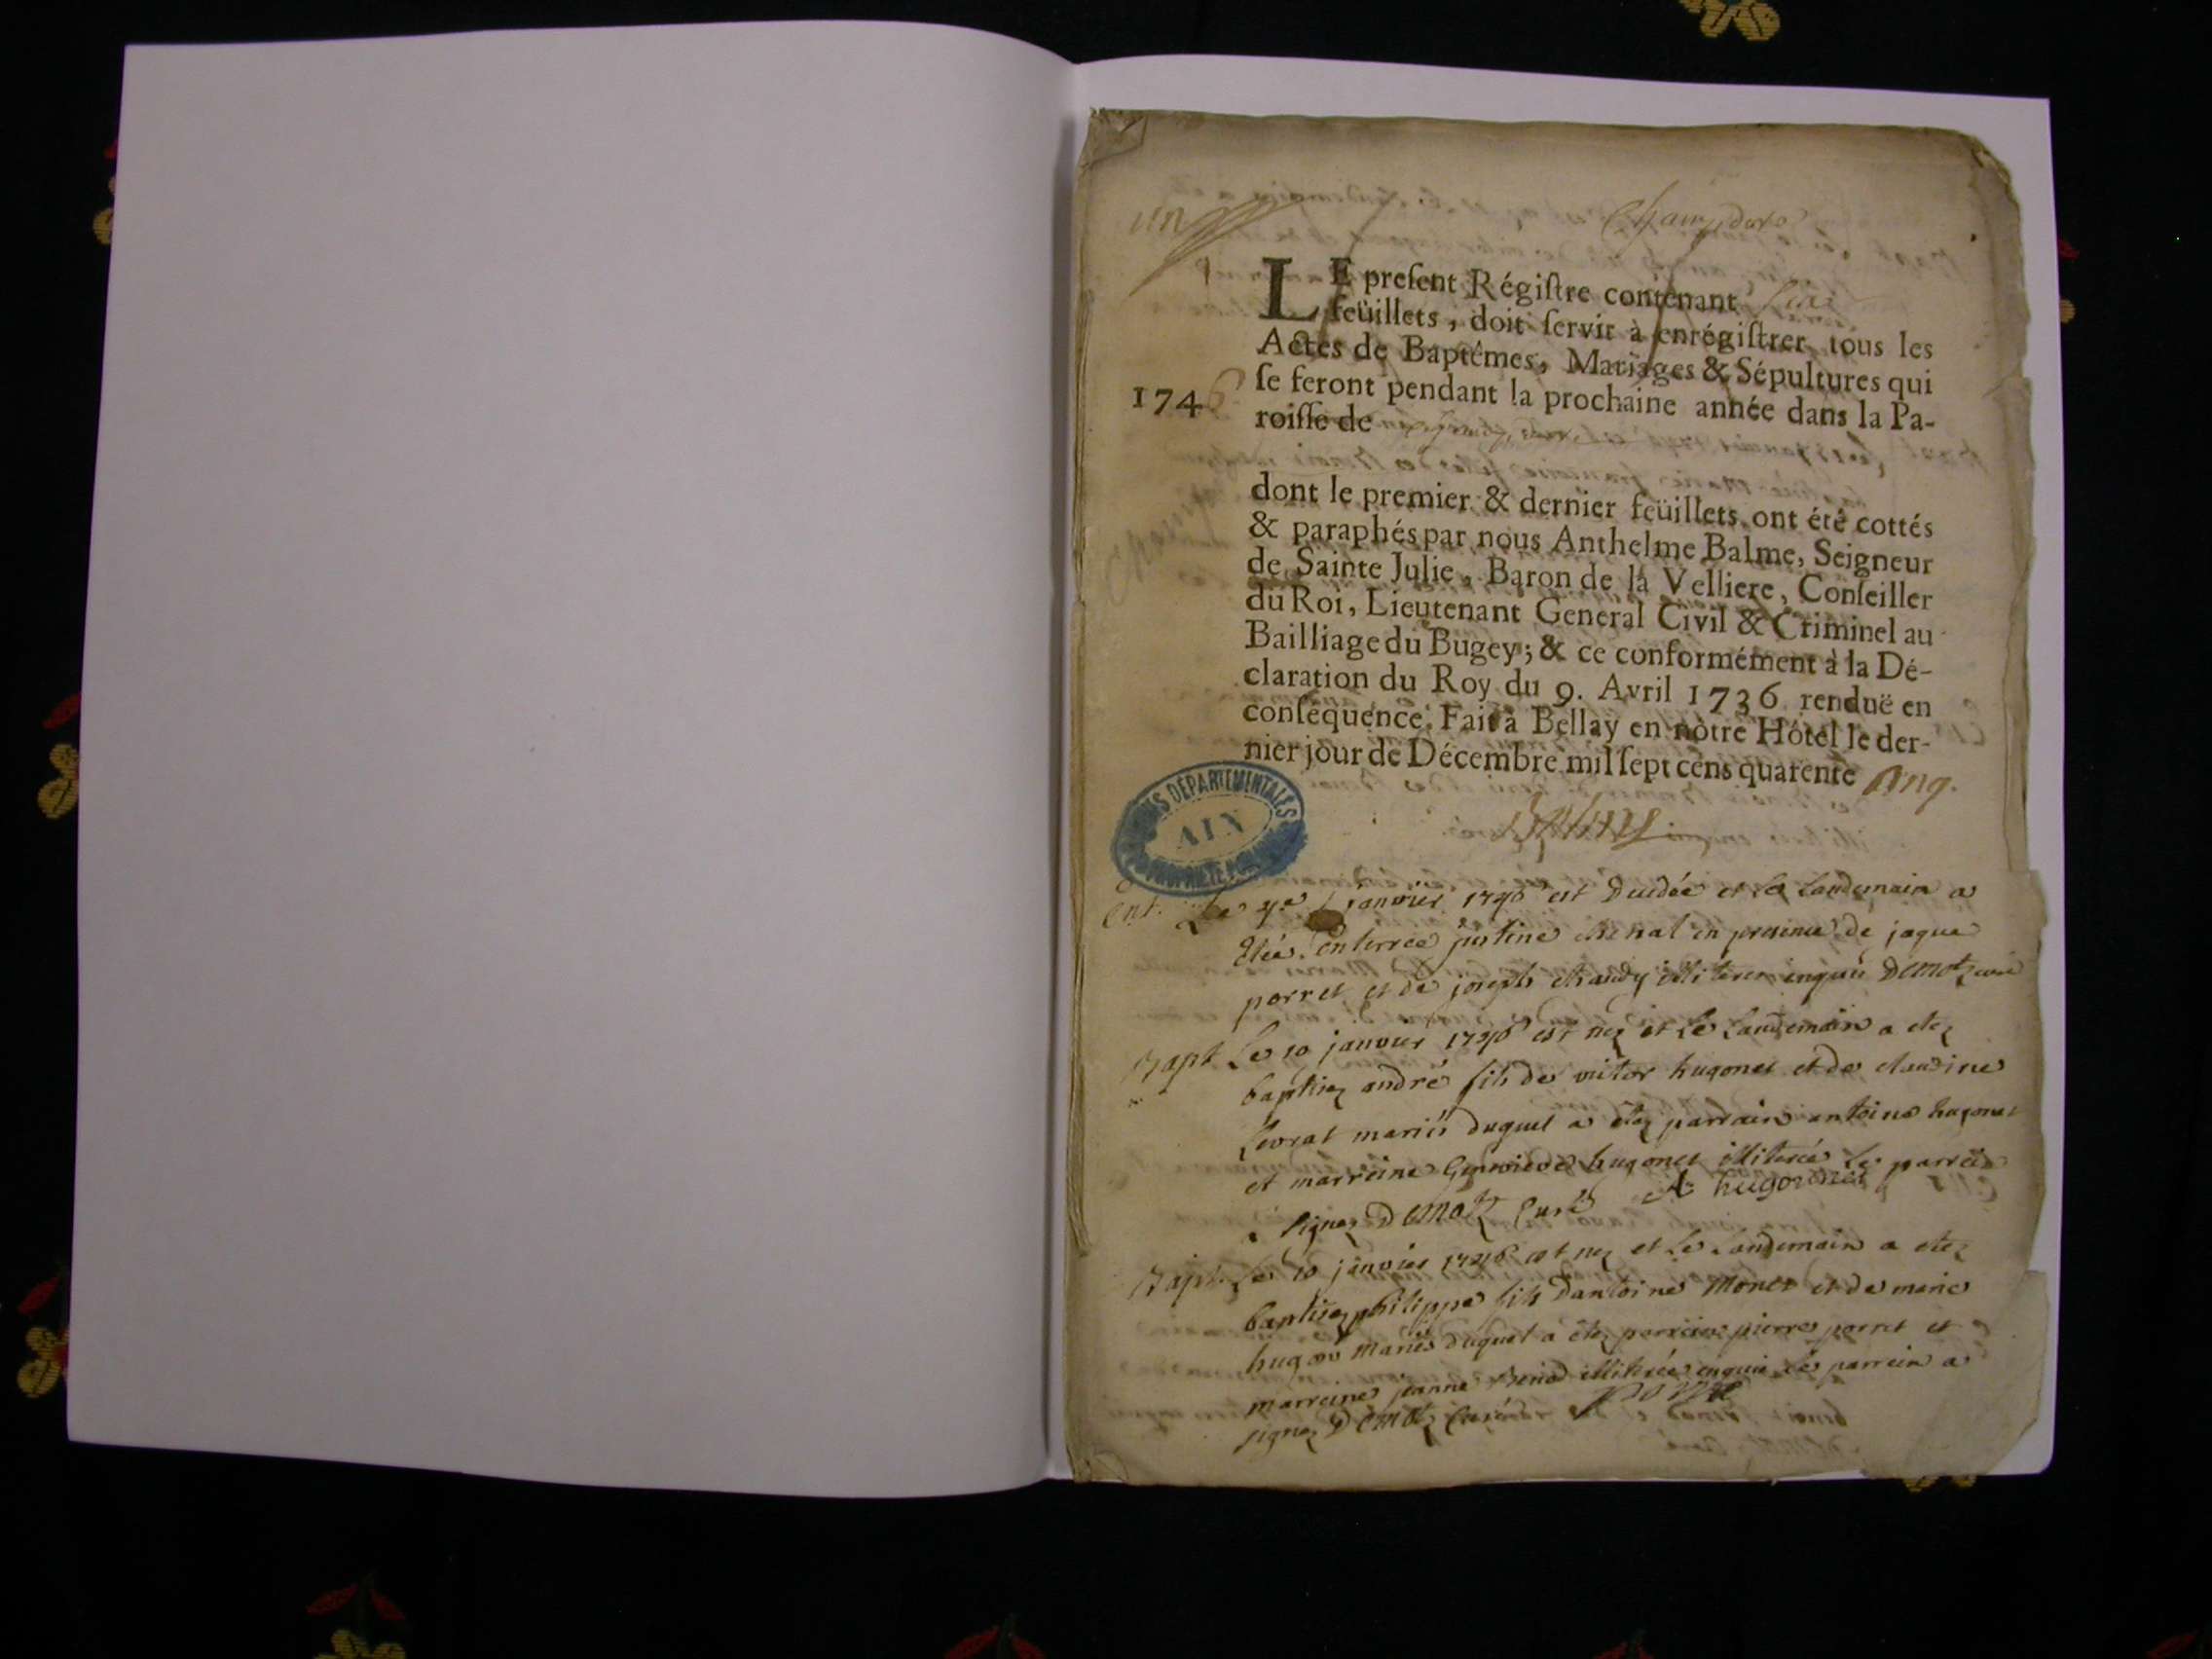 un
LE preſent Régiſtre contenant six
feüillets, doit ſervir à enrégiſtrer tous les
Actes de Baptêmes, Mariages & Sépultures qui
1746 ſe feront pendant la prochaine année dans la Pa-
roiſſe de
dont le premier & dernier feüillets ont été cottés
& paraphés par nous Anthelme Balme, Seigneur
de Sainte Julie, Baron de la Velliere, Conſeiller
du Roi, Lieutenant General Civil & Criminel au
Bailliage du Bugey; & ce conformément à la Dé-
claration du Roy du 9. Avril 1736 renduë en
conſéquence. Fait à Bellay en nôtre Hôtel le der-
nier jour de Décembre mil ſept cens quarente cinq.
Balme
DÉPARTEMENTALES
AIN
Ent. Le janvier 1746 est et le landemain a
étée enterrée justine en presence de jaque
porret et de joseph enquis Demotz curé
Bapt Le 10 janvier 1746 est nez et le landemain a etez
baptisez andré fils de victor hugonet et de claudine
Levrat mariés duquel a étez parrain antoine hugonet
et marreine Genevieve hugonet illiterée le parrein
signez Demotz Curé A hugonnet
Bapt. Le 10 janvier 1746 est nez et le landemain a etez
baptisez philippe fils Dantoine Monet et de marie
hugon mariés duquel a étez parrein pierre porret et
marreine jeanne illiterée enquise le parrein a
signez Demotz Curé porret